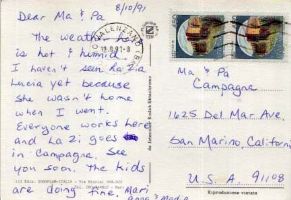 8/10/91
Dear Ma & Pa
The weather here
is hot & humid.
I haven't seen La Zia
Lucia yet because
she wasn't home
when I went.
Everyone works here
and La Zi goes
in Campagne. See
you soon. The kids
are doing fine, Mari
Ma & Pa
Campagne
1625 Del Mar Ave.
San Marino, Californi
U.S.A. 91108
Riproduzione vietata